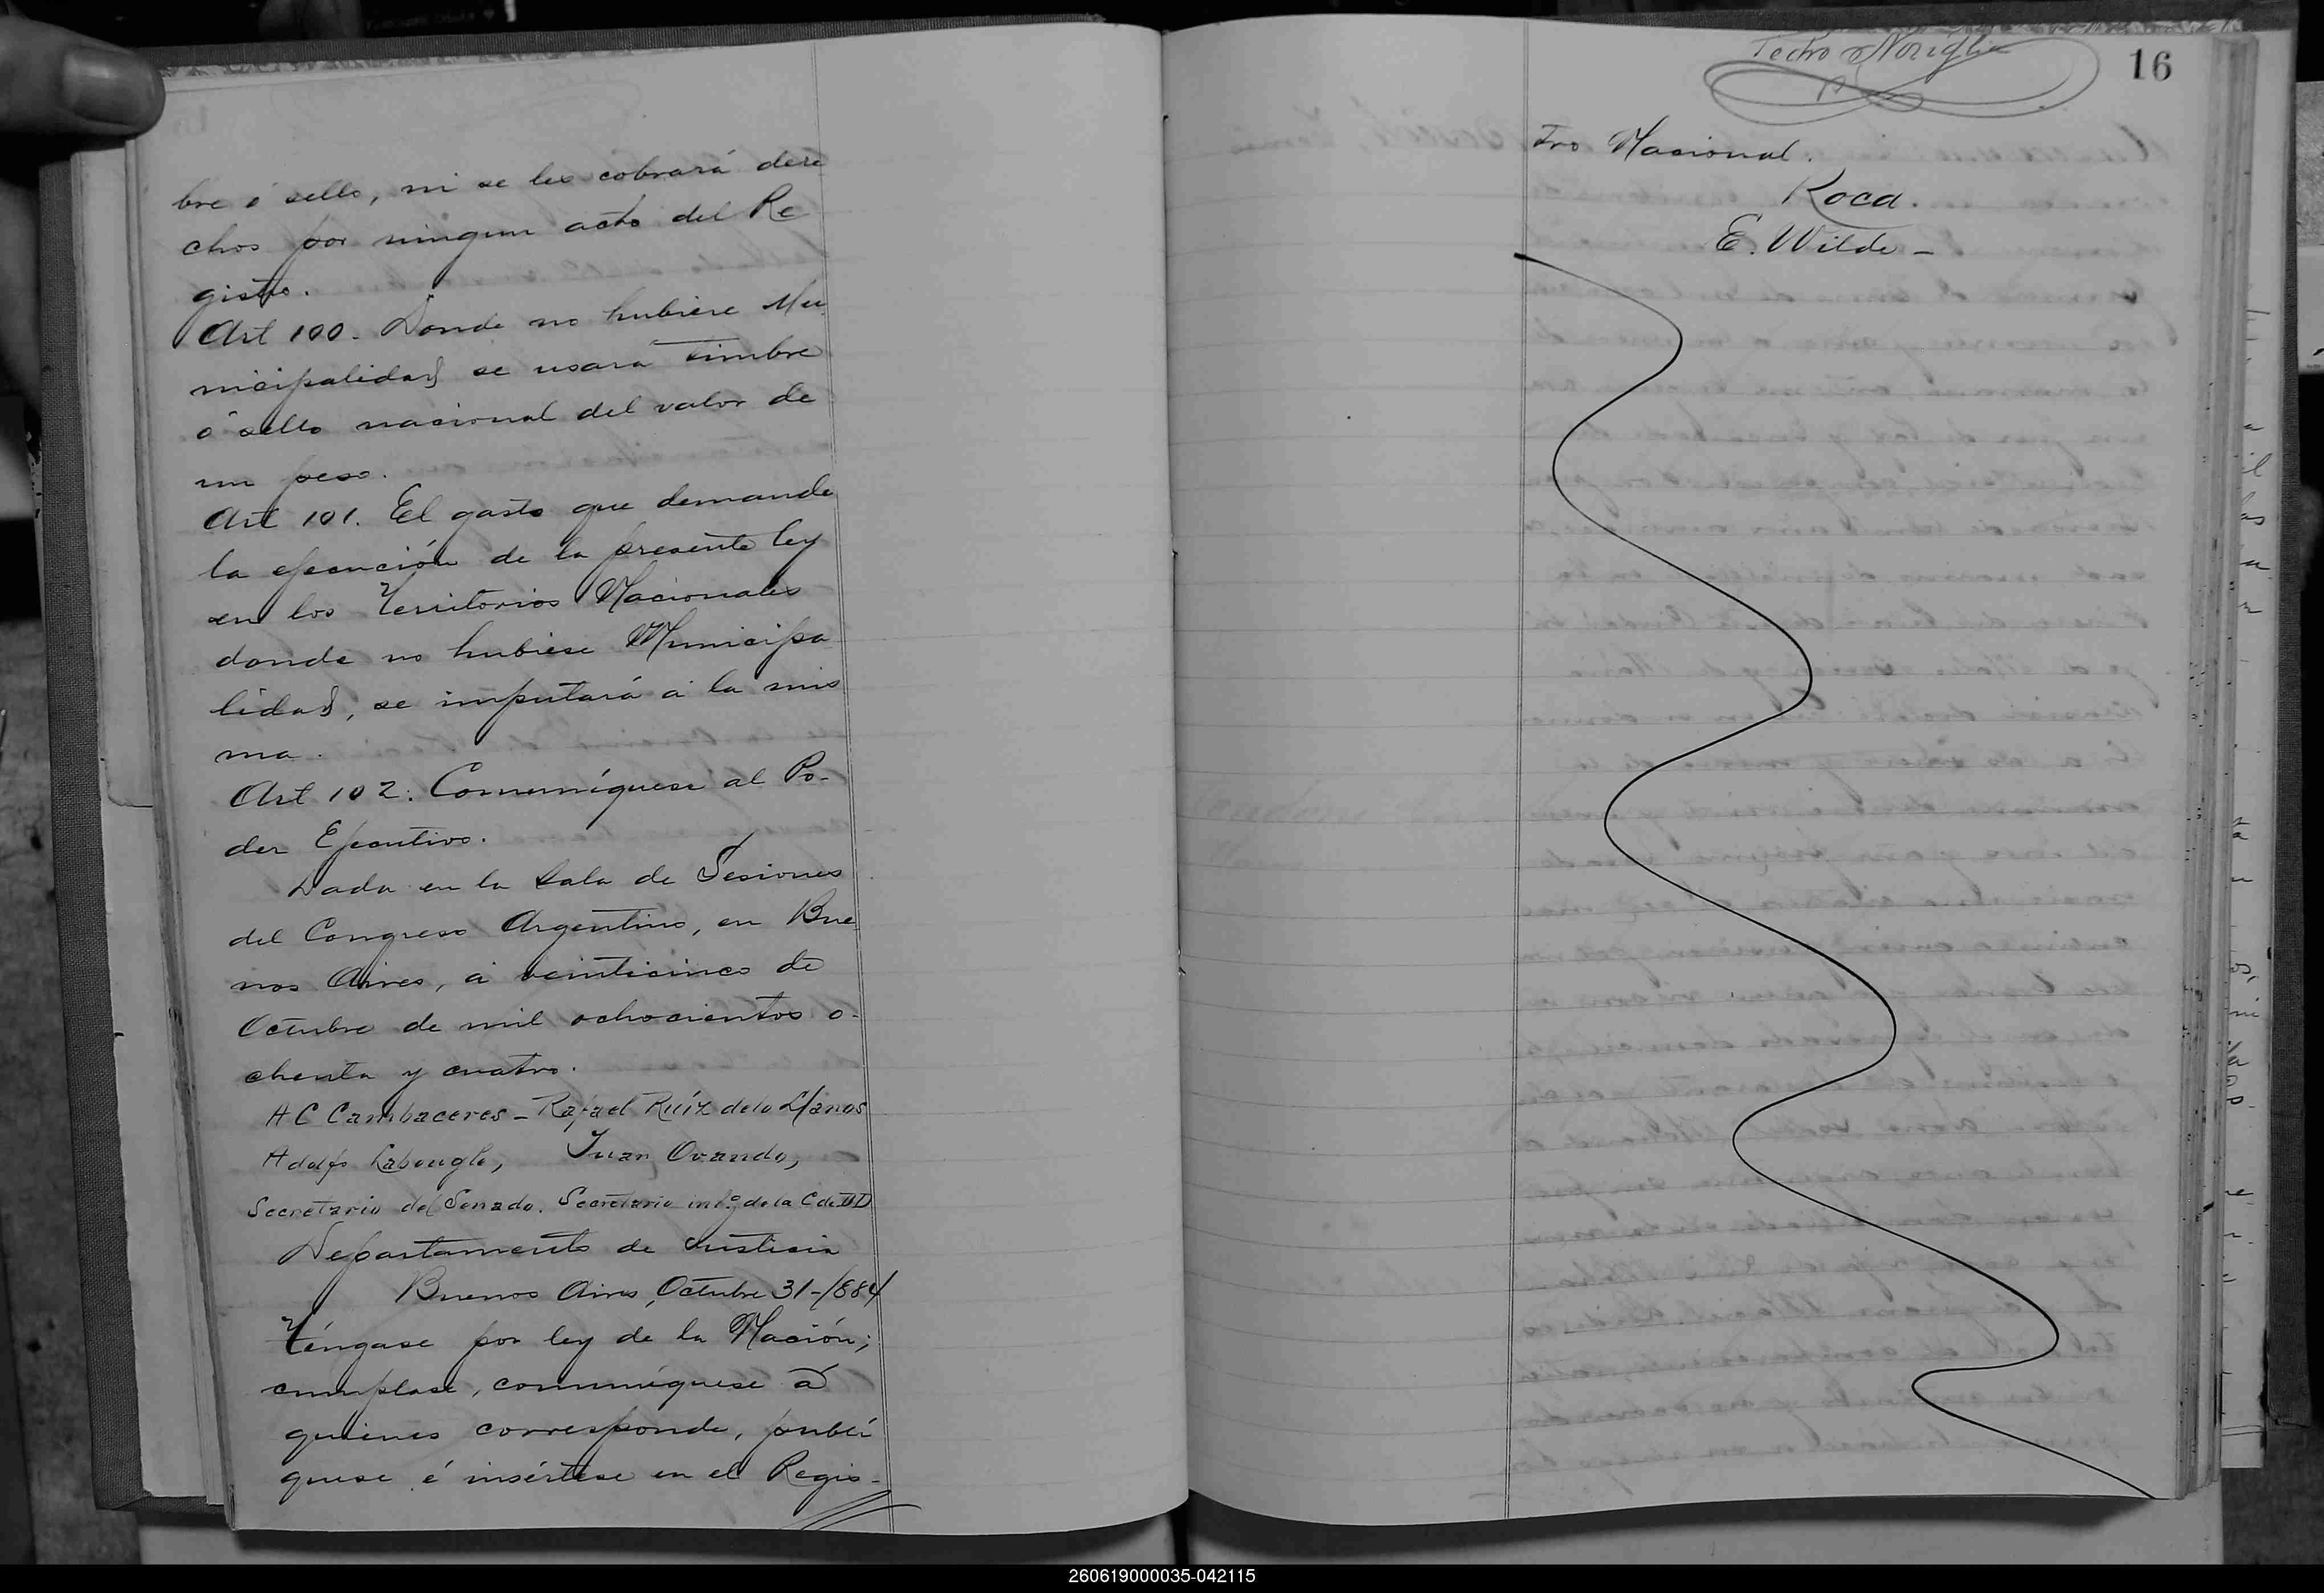 bre ó sello, ni se les cobrará dere
chos por ningun acto del Re
gistro.
Art 100. Donde no hubiere Mu
nicipalidad se usará timbre
ó sello nacional del valor de
un peso.
Art 101. El gasto que demande
la ejecución de la presente ley
en los Territorios Nacionales
donde no hubiese Municipa
lidad, se imputará á la mis
ma.
Art 102. Comuníquese al Po-
der Ejecutivo.
Dada en la Sala de Sesiones
del Congreso Argentino, en Bue
nos Aires, á veinticinco de
Octubre de mil ochocientos o-
chenta y cuatro.
A C Cambaceres - Rafael Ruíz de lo Llanos
Adolfo Labougle, Juan Ovando,
Secretario del Senado. Secretario intº de la C de DD
Departamento de Justicia
Buenos Aires, Octubre 31-1884
Téngase por ley de la Nación;
cumplase, comuníquese á
quienes corresponde, publí
quese é insértese en el Regis-
Pedro Noriglia
16
tro Nacional.
Roca.
E. Wilde -
260619000035-042115